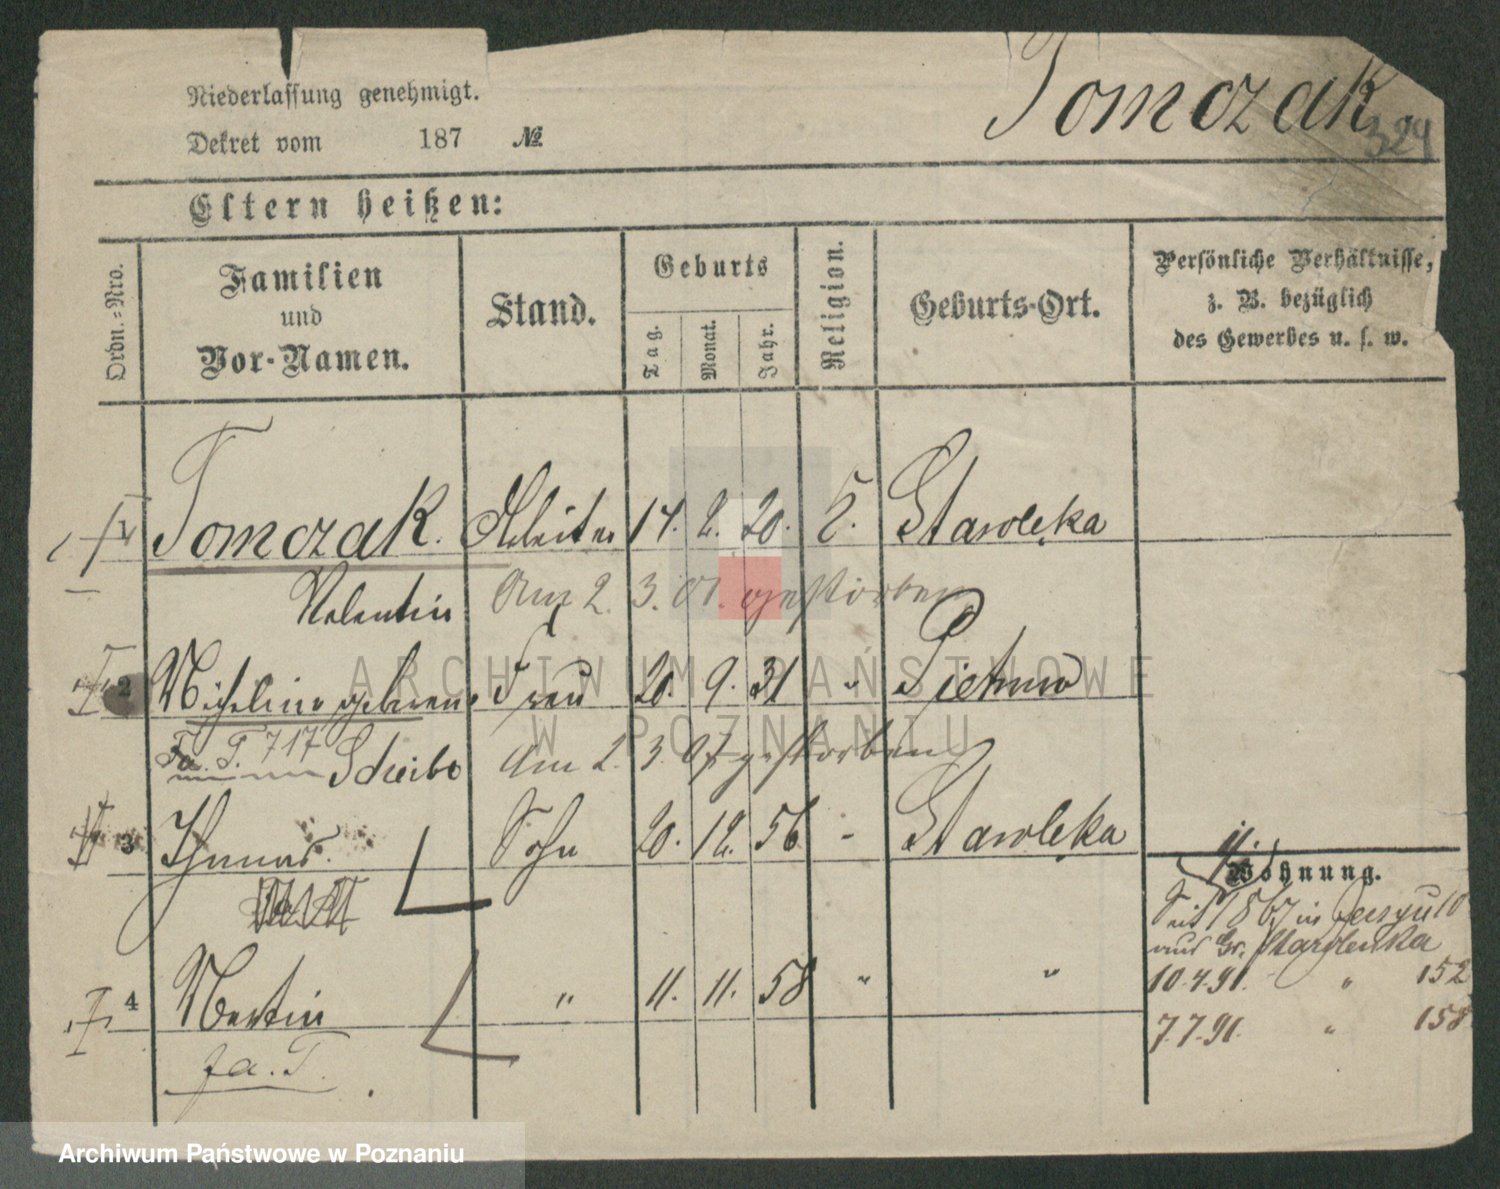 Niederlassung genehmigt.
Dekret vom 187 №
Tomczak.
324
Eltern heißen:
Ordn.-Nro.
Familien
und
Vor-Namen.
Stand.
Geburts
Tag.
Monat.
Jahr.
Religion.
Geburts-Ort.
Persönliche Verhältnisse,
z. B. bezüglich
des Gewerbes u. s. w.
Tomczak. Arbeiter 14. 2. 20. Starolęka
Valentin am 2. 3. 01. gestorben
2 Micheline geborene Frau 20. 9. 31 "
Fa. T. 717 Scheibe am 2. 3. 07 gestorben
3 Thomas. Sohn 20. 12. 56 - Starolęka
4 Martin " 11. 11. 58 " "
Fa. T.
Wohnung.
Seit 1867 in
aus Gr. Starolenka
10.4.91. " 152
7.7.91. " 158
ARCHIWUM PAŃSTWOWE
W POZNANIU
Archiwum Państwowe w Poznaniu